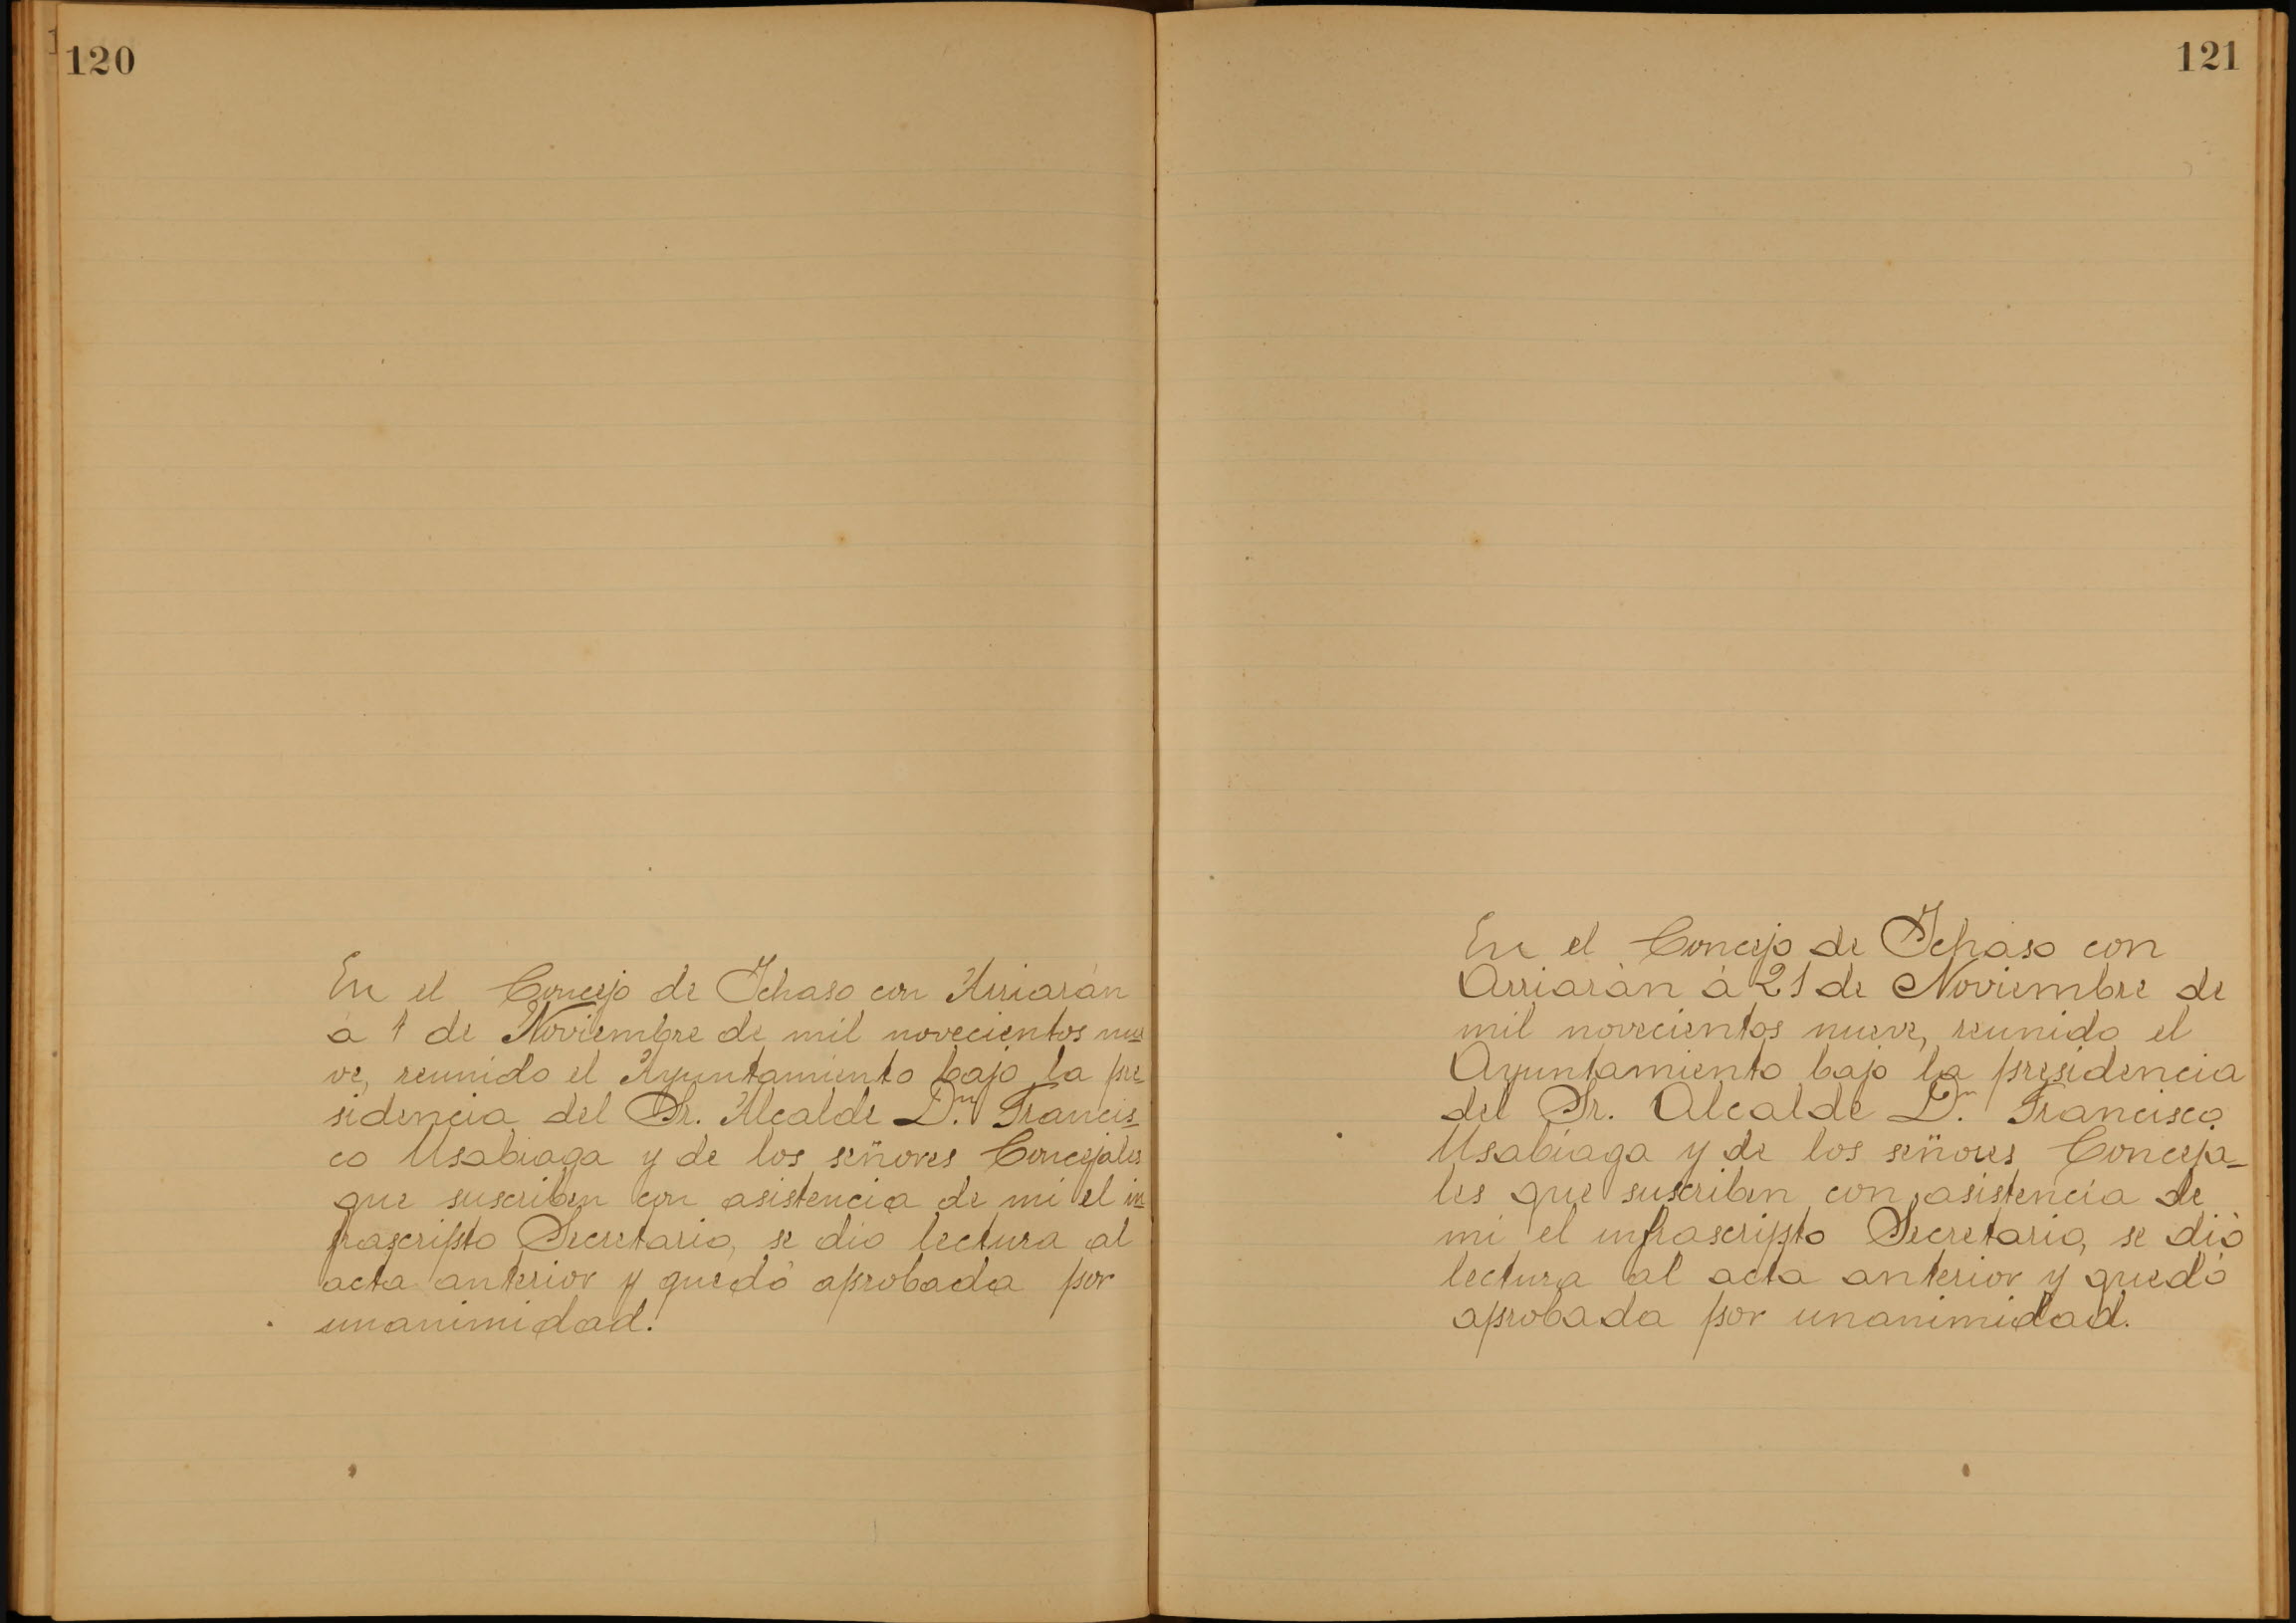 120
En el Concejo de Ichaso con Arriarán
à 1 de Noviembre de mil novecientos nue=
ve, reunido el Ayuntamiento bajo la pre=
sidencia del Sr. Alcalde Dn. Francis=
co Usabiaga y de los señores Concejales
que suscriben con asistencia de mi el in=
frascripto Secretario, se dio lectura al
acta anterior y quedó aprobada por
unanimidad.
121
En el Concejo de Ichaso con
Arriarán à 21 de Noviembre de
mil novecientos nueve, reunido el
Ayuntamiento bajo la presidencia
del Sr. Alcalde Dn. Francisco
Usabiaga y de los señores Conceja-
les que suscriben con asistencia de
mi el infrascripto Secretario, se dió
lectura al acta anterior y quedó
aprobada por unanimidad.